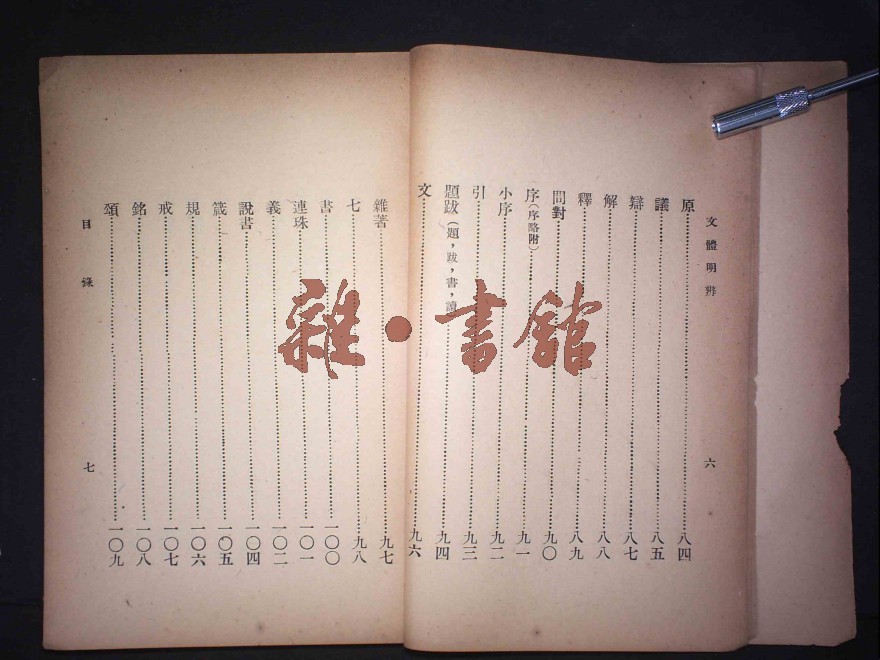 文體明辨
六
原……八四
議……八五
辯……八七
解……八八
釋……八九
問對……九〇
序（序略附）……九一
小序……九二
引……九三
題跋（題，跋，書，讀……九四
文……九六
雜著……九七
七……九八
書……一〇〇
連珠……一〇一
義……一〇二
說書……一〇四
箴……一〇五
規……一〇六
戒……一〇七
銘……一〇八
頌……一〇九
目錄
七
雜·書館